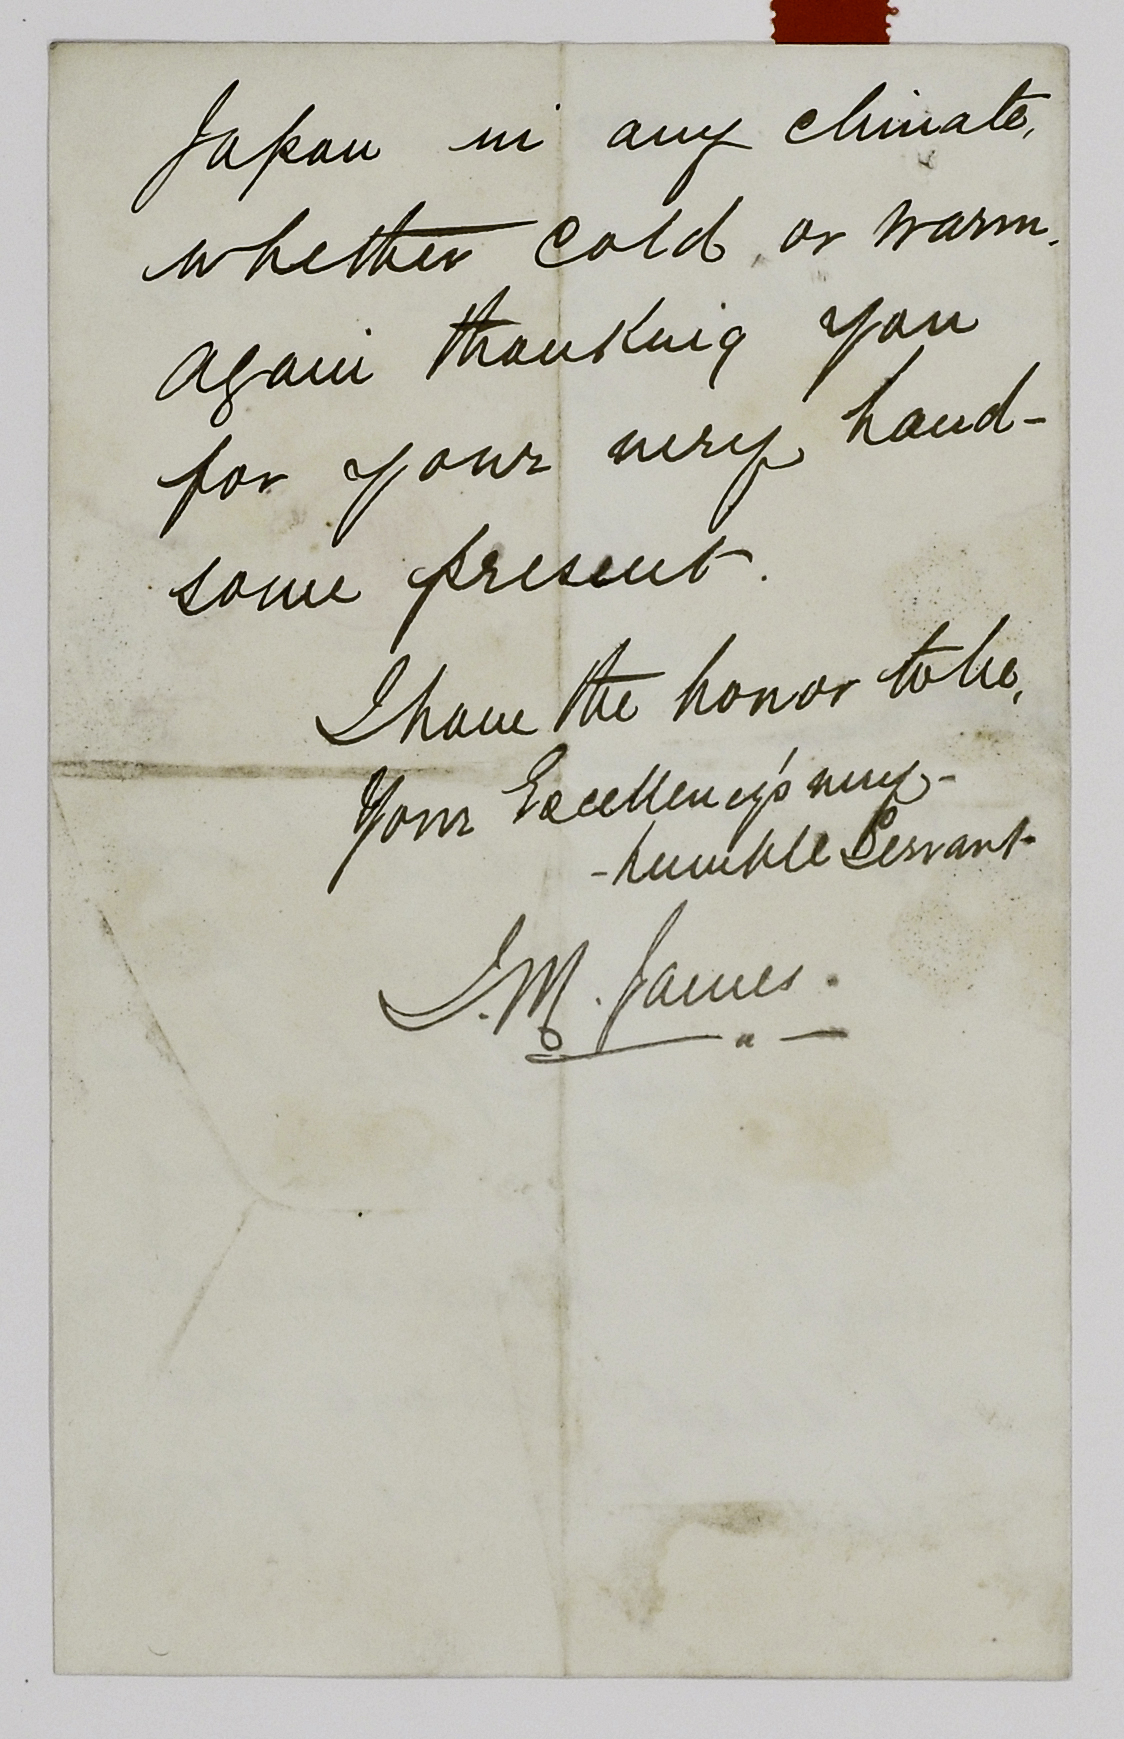 Japan in any climate,
whether cold, or warm.
Again thanking you
for your very hand-
some present.
I have the honor to be,
Your Excellency's very-
-humble Servant-
J. M. James.